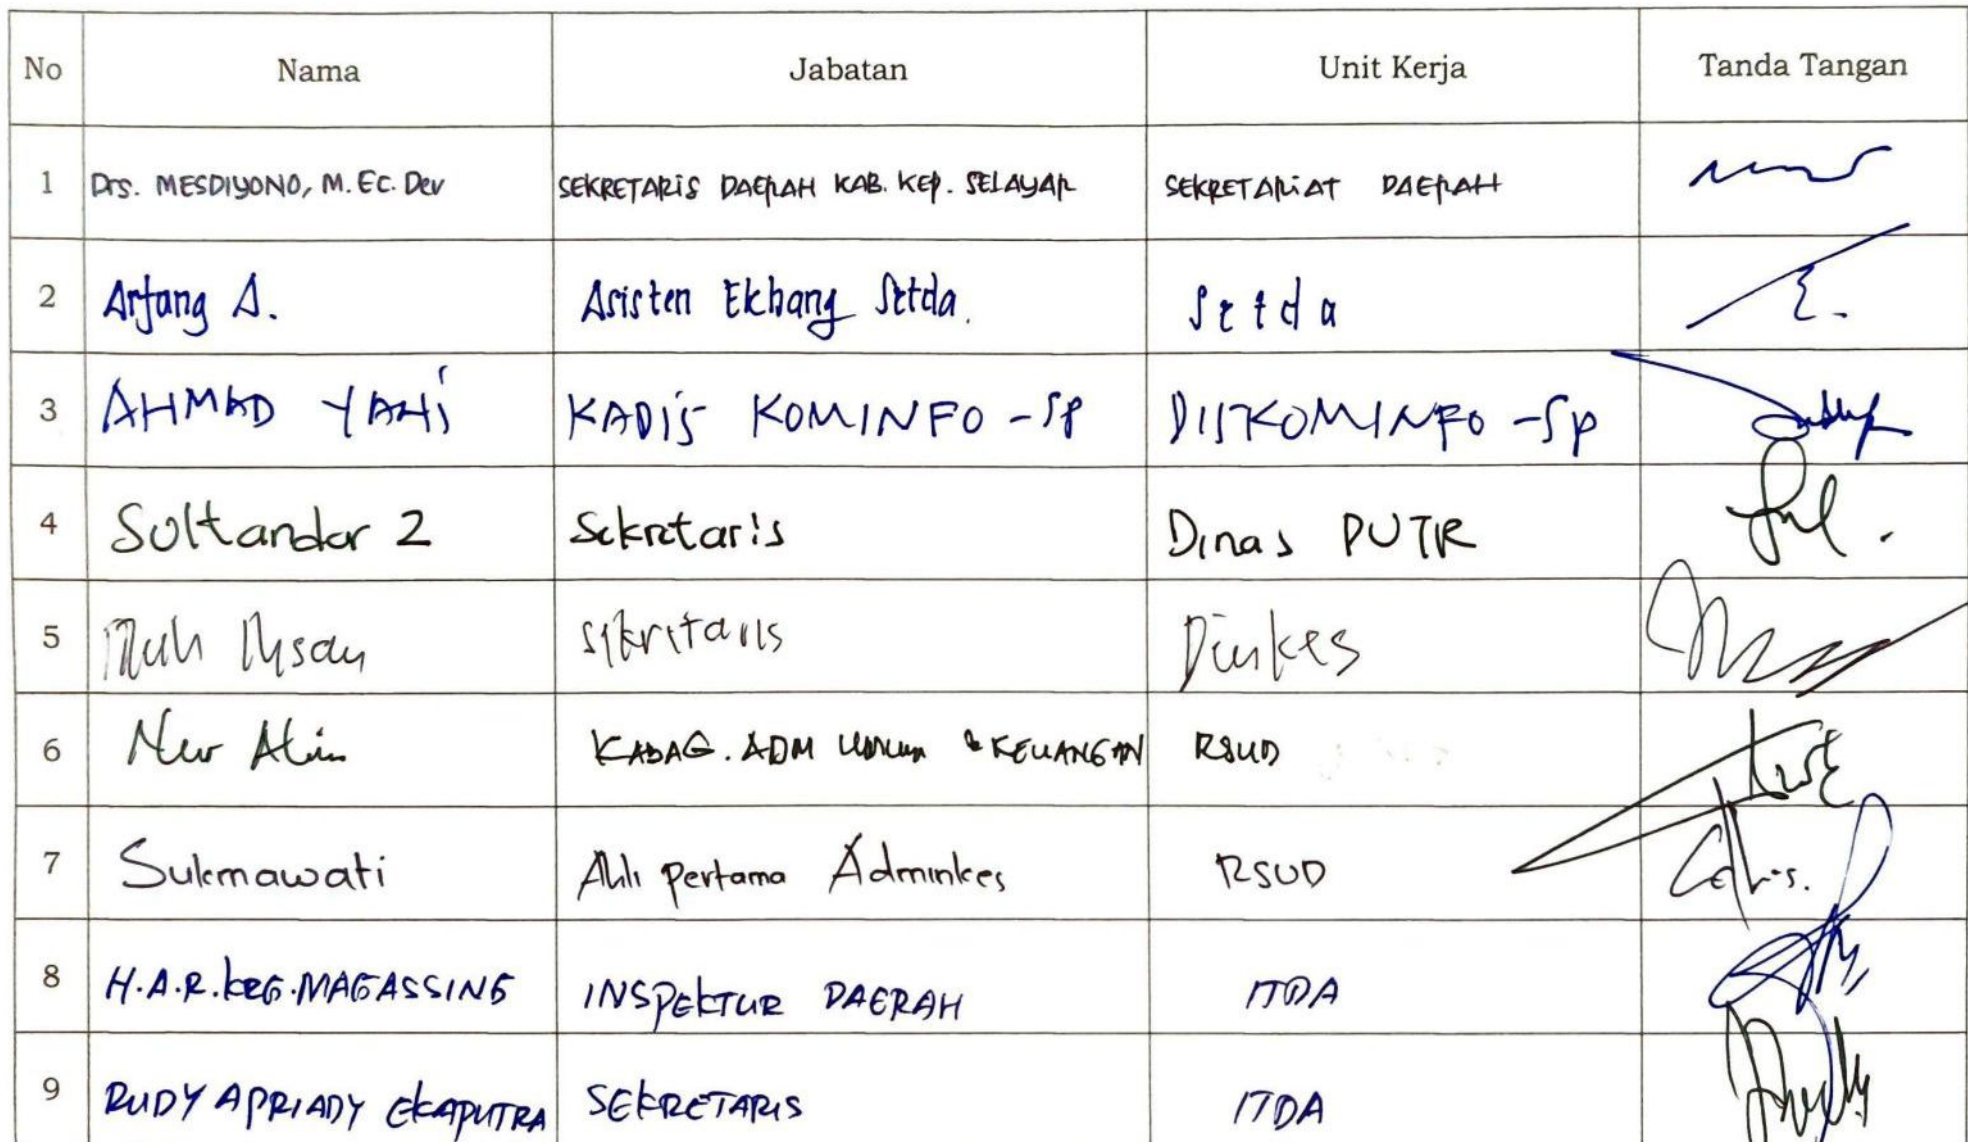 No Nama Jabatan Unit Kerja Tanda Tangan
1 Drs. MESDIYONO, M.Ec.Dev SEKRETARIS DAERAH KAB. KEP. SELAYAR SEKRETARIAT DAERAH
2 Arfang A. Asisten Ekbang Setda. Setda
3 AHMAD YANI KADIS KOMINFO-SP DISKOMINFO-SP
4 Sultandar Z Sekretaris Dinas PUTR
5 Muh Ihsan Sekretaris Dinkes
6 Nur Alim KABAG. ADM UMUM & KEUANGAN RSUD
7 Sukmawati Ahli Pertama Adminkes RSUD
8 H.A.R. KRG. MAGASSING INSPEKTUR DAERAH ITDA
9 RUDY APRIADY EKAPUTRA SEKRETARIS ITDA